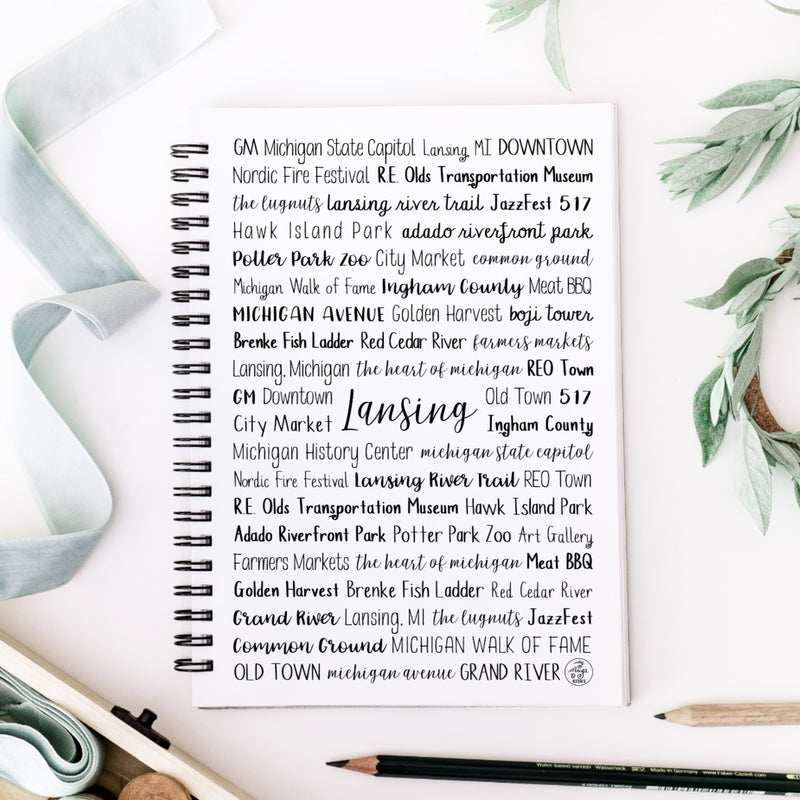 GM Michigan State Capitol Lansing, MI DOWNTOWN
Nordic Fire Festival R.E. Olds Transportation Museum
the lugnuts lansing river trail JazzFest 517
Hawk Island Park adado riverfront park
Potter Park Zoo City Market common ground
Michigan Walk of Fame Ingham County Meat BBQ
MICHIGAN AVENUE Golden Harvest boji tower
Brenke Fish Ladder Red Cedar River farmers markets
Lansing, Michigan the heart of michigan REO Town
GM Downtown Old Town 517
City Market Lansing Ingham County
Michigan History Center michigan state capitol
Nordic Fire Festival Lansing River Trail REO Town
R.E. Olds Transportation Museum Hawk Island Park
Adado Riverfront Park Potter Park Zoo Art Gallery
Farmers Markets the heart of michigan Meat BBQ
Golden Harvest Brenke Fish Ladder Red Cedar River
Grand River Lansing, MI the lugnuts JazzFest
Common Ground MICHIGAN WALK OF FAME
OLD TOWN michigan avenue GRAND RIVER
Made in Germany www.Faber-Castell